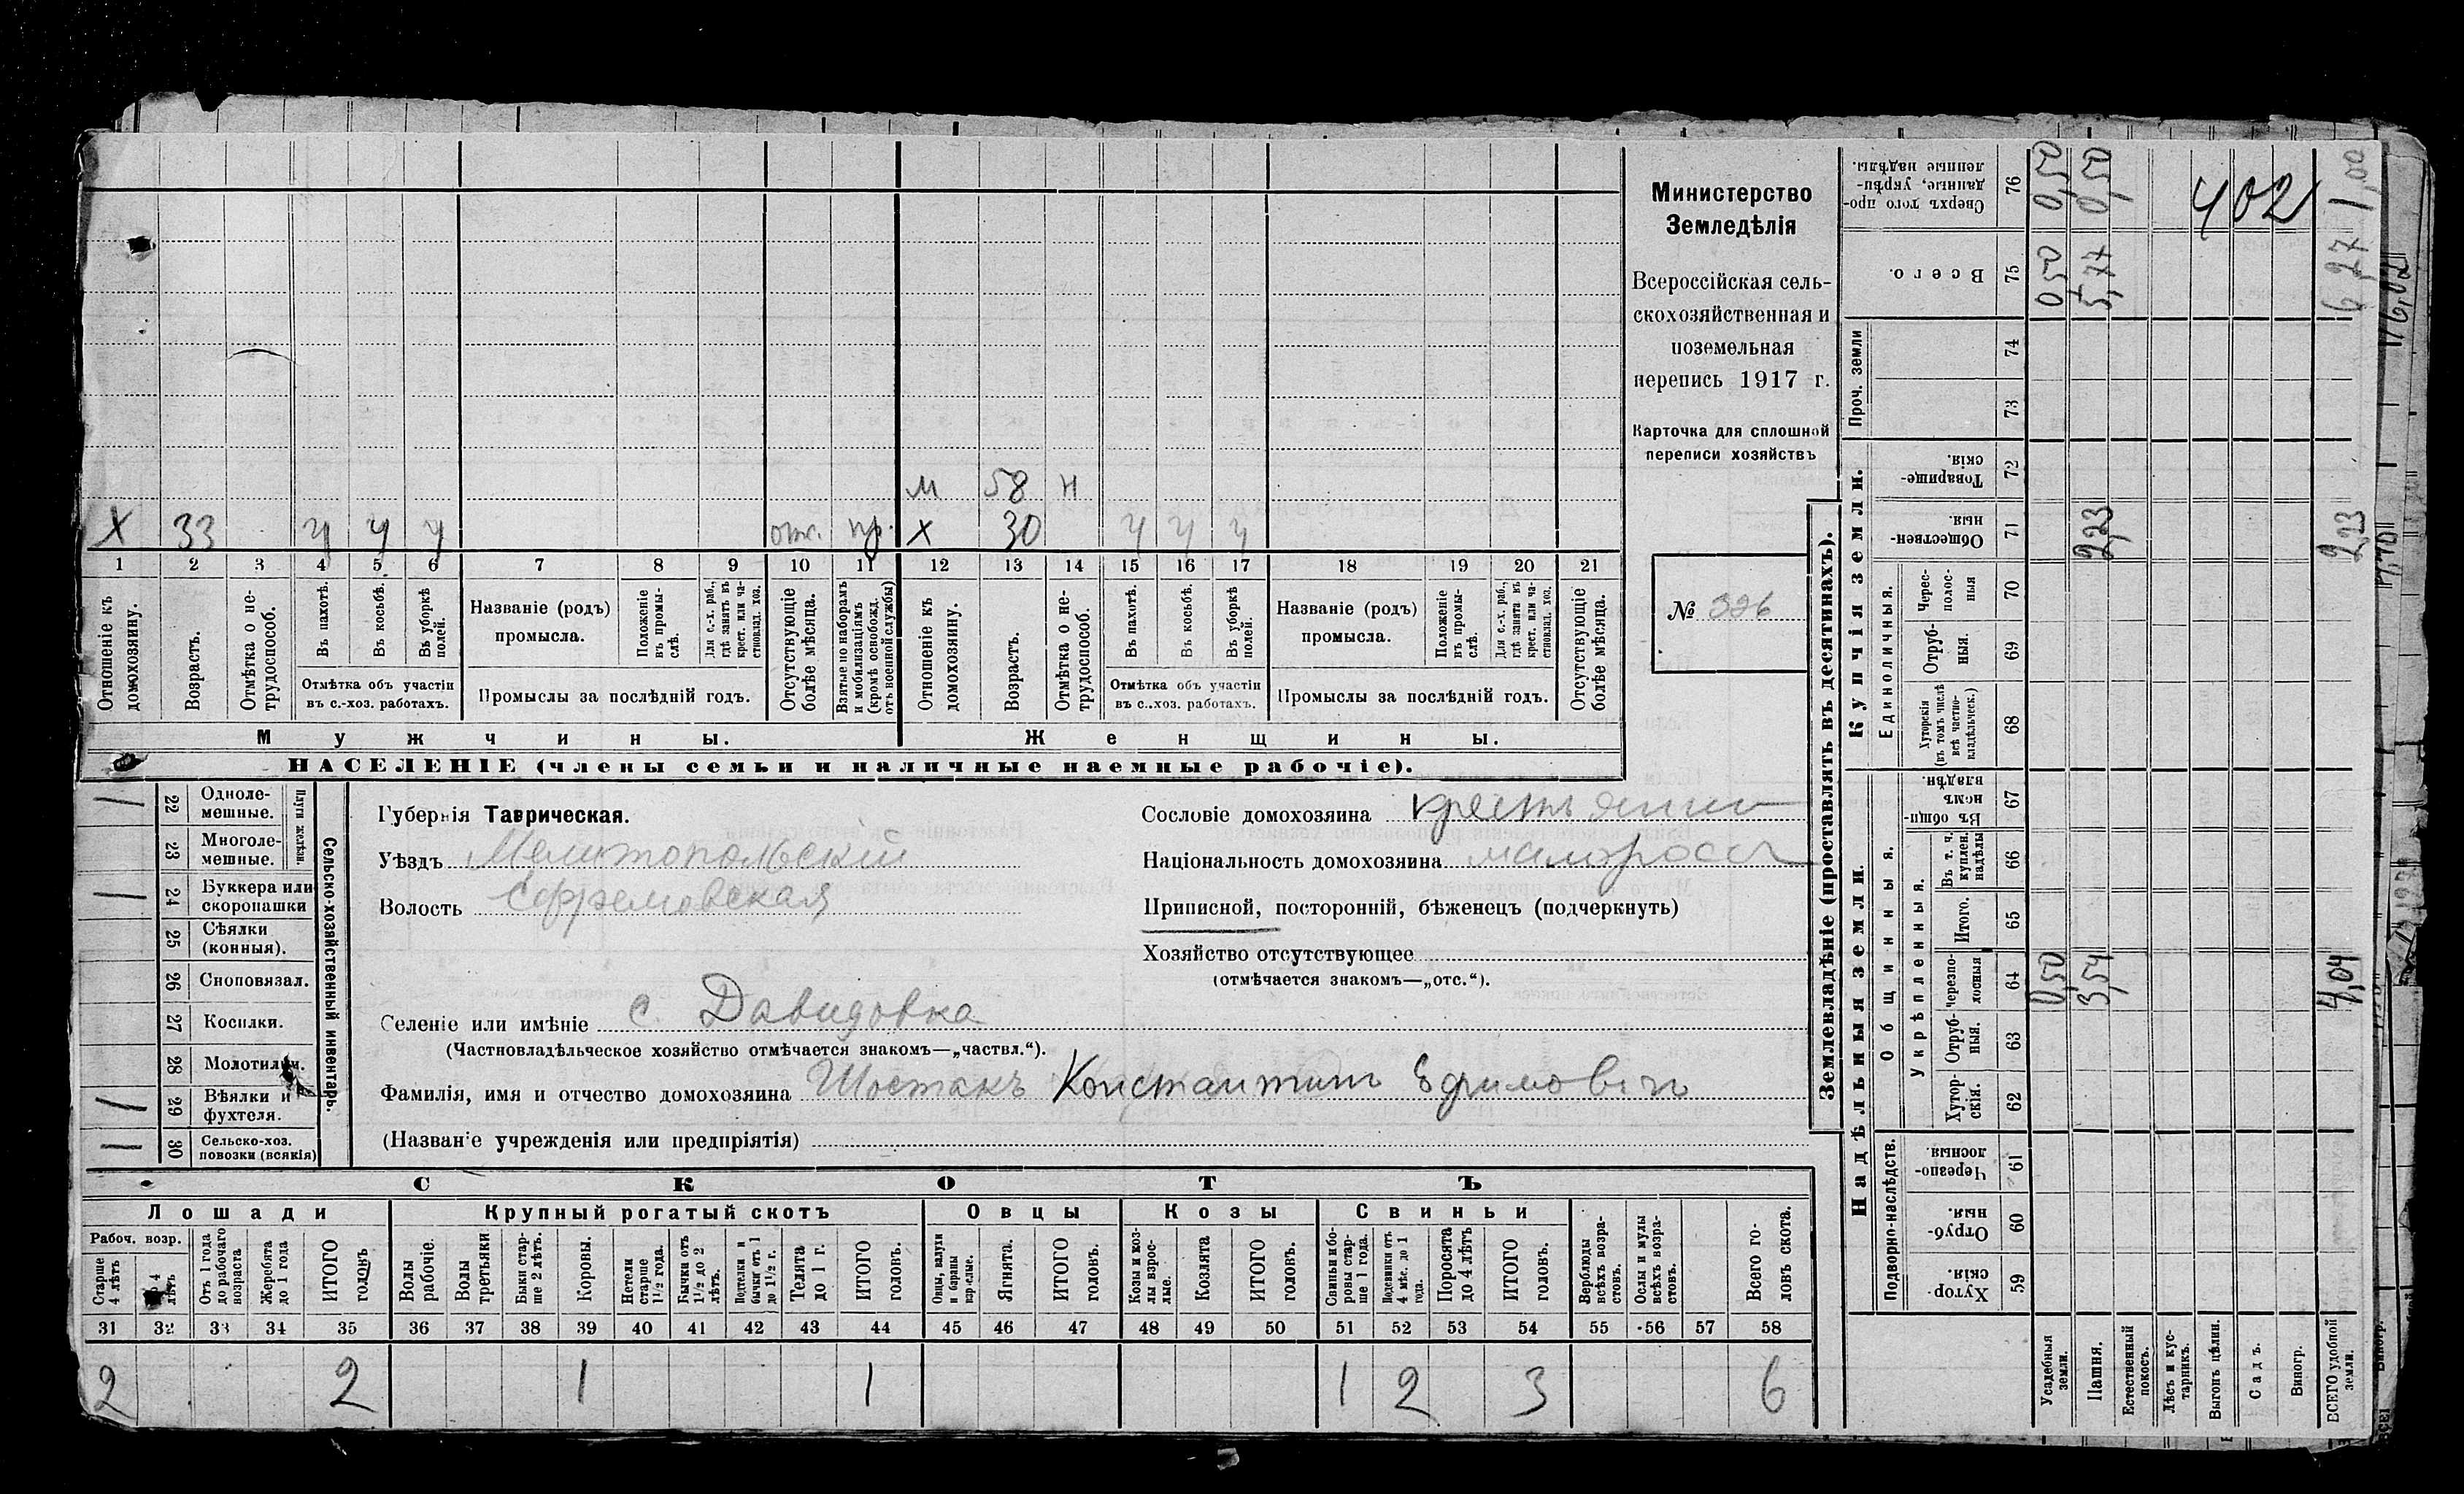 М 58 Н
Х 33 у у у отс. пр. Х 30 у у у
1 2 3 4 5 6 7 8 9 10 11 12 13 14 15 16 17 18 19 20 21
Отношеніе къ домохозяину.
Возрастъ.
Отмѣтка о не-трудоспособ.
Въ пахотѣ.
Въ косьбѣ.
Въ уборкѣ полей.
Отмѣтка объ участіи
въ с.-хоз. работахъ.
Названіе (родъ)
промысла.
Положеніе въ промы-слѣ.
Для с.-х. раб., гдѣ занятъ въ крест. или ча-стновлад. хоз.
Промыслы за послѣдній годъ.
Отсутствующіе болѣе мѣсяца.
Взятые по наборамъ и мобилизаціямъ (кромѣ освобожд. отъ военной службы)
Отношеніе къ домохозяину.
Возрастъ.
Отмѣтка о не-трудоспособ.
Въ пахотѣ.
Въ косьбѣ.
Въ уборкѣ полей.
Отмѣтка объ участіи
въ с..хоз. работахъ.
Названіе (родъ)
промысла.
Положеніе въ промы-слѣ.
Для с.-х. раб., гдѣ занята въ крест. или ча-стновлад. хоз.
Промыслы за послѣдній годъ.
Отсутствующіе болѣе мѣсяца.
Мужчины.
Женщины.
НАСЕЛЕНІЕ (члены семьи и наличные наемные рабочіе).
Министерство
Земледѣлія
Всероссійская сель-
скохозяйственная и
поземельная
перепись 1917 г.
Карточка для сплошной
переписи хозяйствъ
№ 326
Сельско-хозяйственный инвентарь.
Плуги желѣзн.
/ 22 Одноле-мешные.
23 Многоле-мешные.
/ 24 Буккера или скоропашки
25 Сѣялки (конныя).
26 Сноповязал.
27 Косилки.
28 Молотилки.
/ 29 Вѣялки и фухтеля.
/ 30 Сельско-хоз. повозки (всякія)
Губернія Таврическая.
Уѣздъ Мелитопольскій
Волость Ефремовская
Сословіе домохозяина крестьянин
Національность домохозяина малоросс
Приписной, посторонній, бѣженецъ (подчеркнуть)
Хозяйство отсутствующее
(отмѣчается знакомъ—„отс.“).
Селеніе или имѣніе с. Давидовка
(Частновладѣльческое хозяйство отмѣчается знакомъ—„частвл.“).
Фамилія, имя и отчество домохозяина Шостакъ Константинъ Ефимовичъ
(Названіе учрежденія или предпріятія)
СКОТЪ
Лошади Крупный рогатый скотъ Овцы Козы Свиньи
Рабоч. возр.
Старше 4 лѣтъ
4 лѣтъ
Отъ 1 года до рабочаго возраста
Жеребята до 1 года
ИТОГО головъ
Волы рабочіе.
Волы третьяки
Быки стар-ше 2 лѣтъ.
Коровы.
Нетели старше 1½ года.
Бычки отъ 1½ до 2 лѣтъ.
Подтелки и бычки отъ 1 до 1½ г.
Телята до 1 г.
ИТОГО головъ.
Овцы, валухи и бараны взрослые.
Ягнята.
ИТОГО головъ.
Козы и коз-лы взрос-лые.
Козлята
ИТОГО головъ.
Свиньи и бо-ровы стар-ше 1 года.
Подсвинки отъ 4 мѣс. до 1 года.
Поросята до 4 лѣтъ
ИТОГО головъ.
Верблюды всѣхъ возра-стовъ.
Ослы и мулы всѣхъ возра-стовъ.
Всего го-ловъ скота.
31 32 33 34 35 36 37 38 39 40 41 42 43 44 45 46 47 48 49 50 51 52 53 54 55 56 57 58
2 2 1 1 1 2 3 6
Землевладѣніе (проставлять въ десятинахъ).
Сверхъ того про-данные, укрѣп-ленные надѣлы. 76 0,50 0,50 1,00
402
Всего. 75 0,50 5,77 6,27
Проч. земли
74
73
Купчія земли.
Товарище-скія. 72
Обществен-ныя. 71 2,23 2,23
Единоличныя.
Черес-полос-ныя 70
Отруб-ныя. 69
Хуторскія (въ томъ числѣ всѣ частно-владѣльческ.) 68
Надѣльныя земли.
Общинныя.
Въ общи-номъ владѣн. 67
Укрѣпленныя.
Въ т. ч. куплен. надѣлы 66
Итого. 65
Черезпо-лосныя 64 0,50 3,54 4,04
Отруб-ныя. 63
Хутор-скія. 62
Подворно-наслѣдств.
Черезпо-лосныя. 61
Отруб-ныя. 60
Хутор-скія. 59
Усадебныя земли.
Пашня.
Естественный покосъ.
Лѣсъ и кус-тарникъ.
Выгонъ цѣлин.
Садъ.
Виногр.
ВСЕГО удобной земли.
16,02
7,70
Виногр.